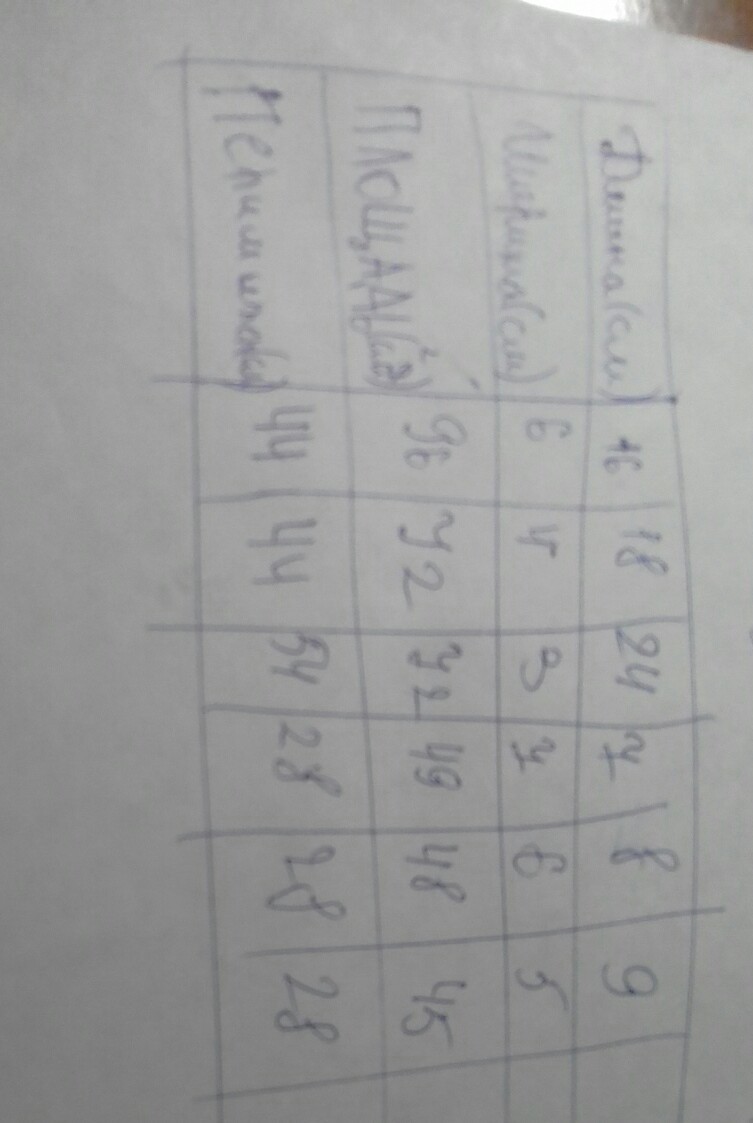 Длина(см) 16 18 24 7 8 9
Ширина(см) 6 4 3 7 6 5
ПЛОЩАДЬ(см²) 96 72 72 49 48 45
44 44 54 28 28 28